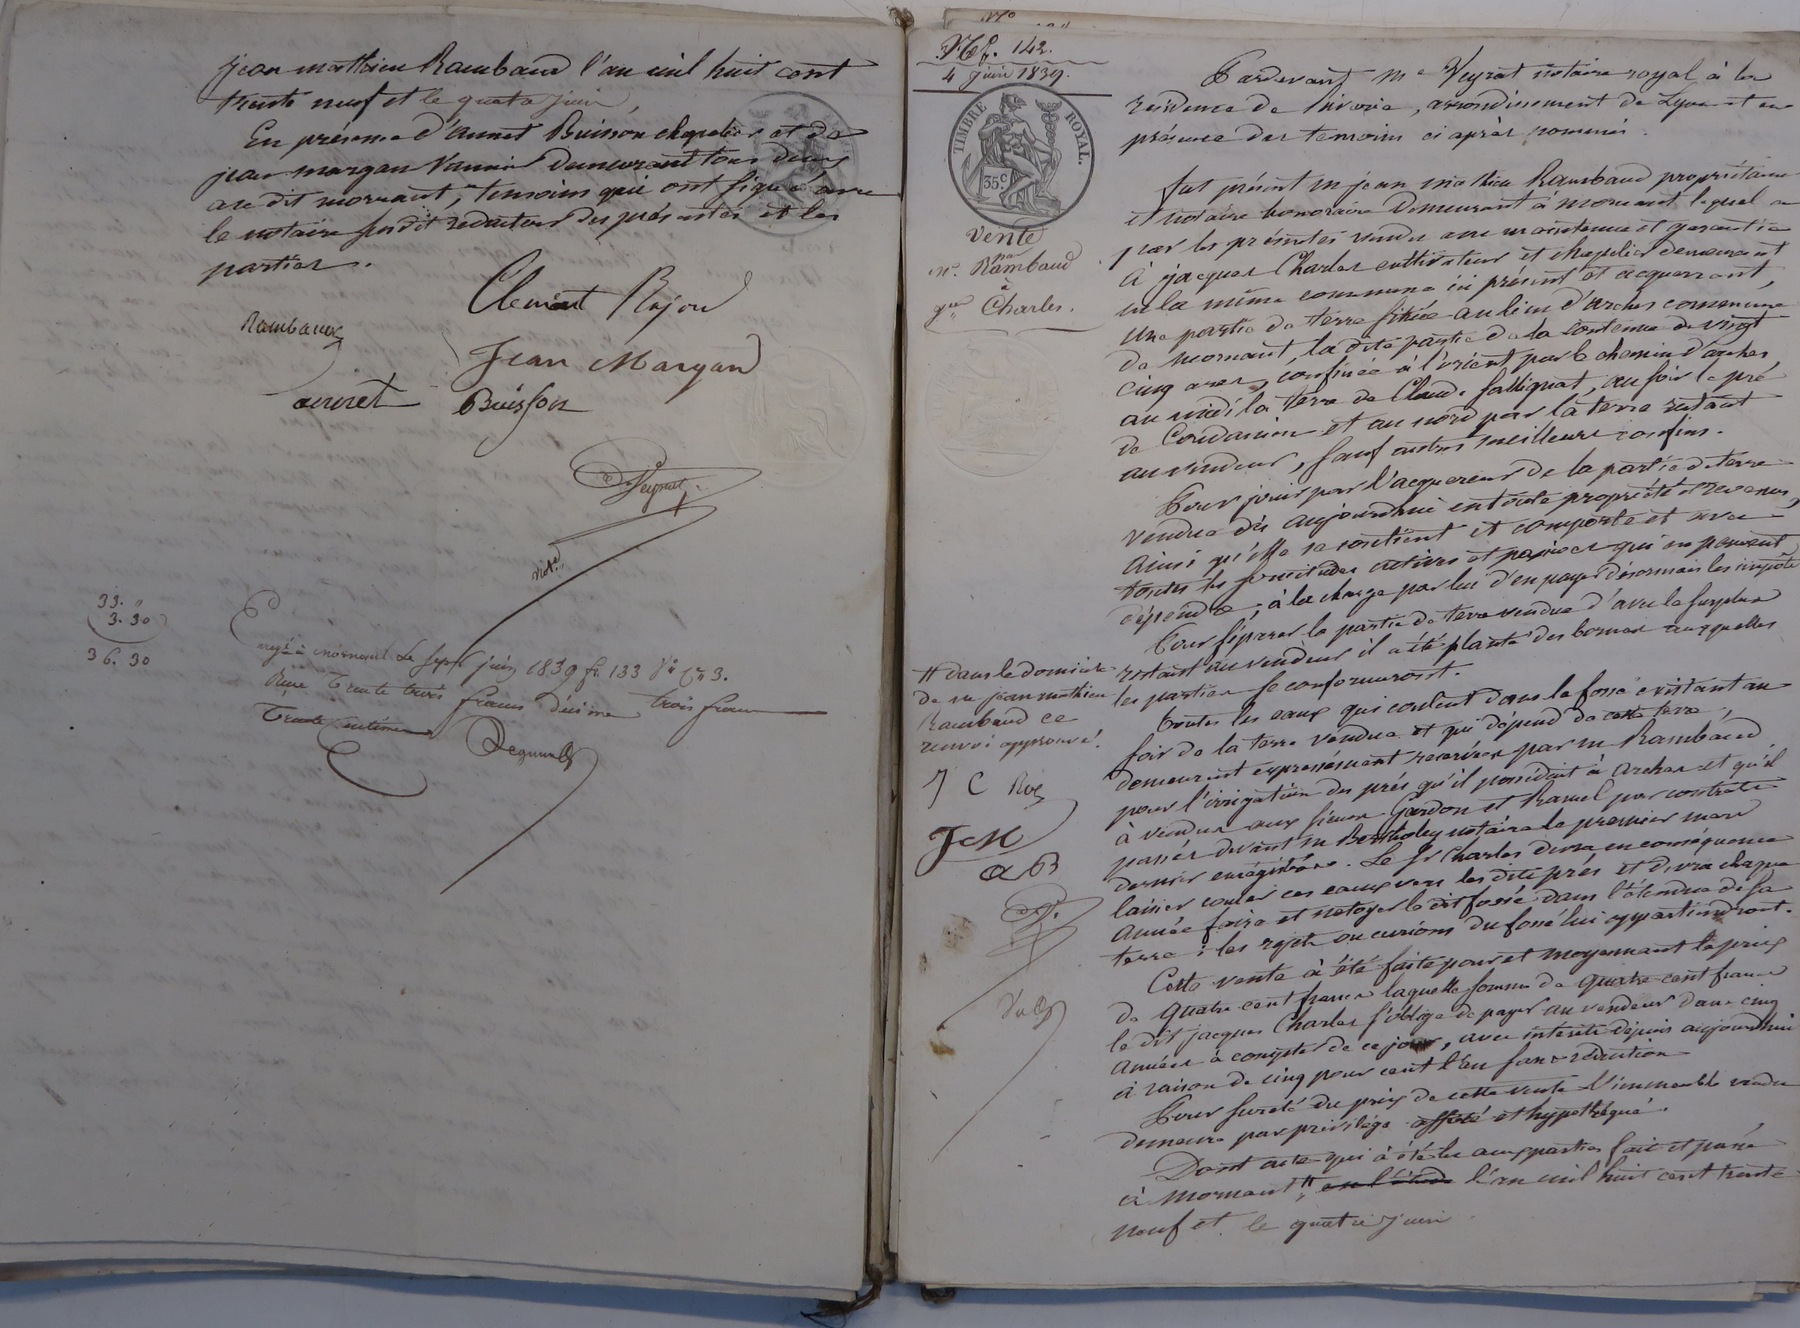 jean mathieu Rambaud l'an mil huit cent
trente neuf et le quatre juin,
En présence d'annet Buisson chapelier et de
jean margan vannier demeurant tous deux
au dit mornant, temoins qui ont signé avec
le notaire susdit redacteur des présentes et les
parties.
Clement Rajon
Rambaud
Jean Margan
annet Buisson
Veyrat
33. "
3. 30
36. 30
Enregé à mornant Le sept juin 1839 fo 133 Vo Ce 3.
Reçu trente trois francs décime trois francs
Trente centimes
No
Rep. 142.
4 juin 1839.
TIMBRE ROYAL.
35 c
Vente
par
Me. Rambaud
à
Jques Charles.
Pardevant Me Veyrat notaire royal à la
residence de Riverie, arrondissement de Lyon et en
présence des temoins ci après nommés.
fut présent m jean mathieu Rambaud propriétaire
et notaire honoraire demeurant à mornant, lequel a
par les présentes vendu avec maintenue et garantie
à jacques Charles cultivateur et chapelier demeurant
en la même commune ici présent et acquerrant,
une partie de terre située au lieu d'arches commune
de mornant, la dite partie de la contenue de vingt
cinq ares, confinée à l'orient par le chemin d'arches,
au midi la terre de Claude falliguat, au soir le pré
de et au nord par la terre restant
au vendeur, sauf autres meilleurs confins.
Pour jouir par l'acquereur de la partie de terre
vendue dès aujourdhui en toute propriété et revenus,
ainsi qu'elle se contient et comporte et avec
toutes les servitudes actives et passives qui en peuvent
dépendre, à la charge par lui d'en payer désormais les impôts
Pour séparer la partie de terre vendue d'avec le surplus
restant au vendeur il a été planté des bornes auxquelles
les parties se conformeront.
toutes les eaux qui coulent dans le fossé existant au
soir de la terre vendue et qui dépend de cette terre,
demeurent expressément reservées par m Rambaud
pour l'irrigation des prés qu'il possédait à arches et qu'il
à vendus aux sieurs Gardon et Ramel par contrats
passés devant m Bertholey notaire le premier mars
dernier enregistrés. Le sr Charles devra en conséquence
laisser couler ces eaux vers les dits prés et devra chaque
année faire et netoyer le dit fossé dans l'étendue de sa
terre; les rejets ou curions du fossé lui appartiendront.
Cette vente à été faite pour et moyennant le prix
de quatre cent francs laquelle somme de quatre cent francs
le dit jacques Charles s'oblige de payer au vendeur dans cinq
années à compter de ce jour, avec interets depuis aujourdhui
à raison de cinq pour cent l'an sans rédaction
Pour sureté du prix de cette vente l'immeuble vendu
demeure par privilége affecté et hypothéqué.
Dont acte qui à été lu aux parties fait et passé
à mornant #, en l'étude l'an mil huit cent trente
neuf et le quatre juin
# dans le domicile
de m jean mathieu
Rambaud ce
renvoi approuvé.
J C Rd
JcM
aB